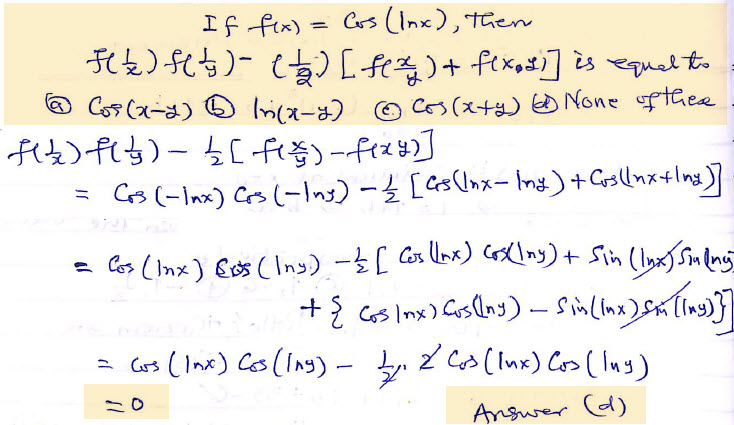 If f(x) = Cos (lnx), Then
f(1/x) f(1/y) - (1/2) [f(x/y) + f(x.y)] is equal to
(a) Cos(x-y) (b) ln(x-y) (c) Cos(x+y) (d) None of these
f(1/x) f(1/y) - 1/2 [f(x/y) - f(xy)]
= Cos (-lnx) Cos (-lny) - 1/2 [Cos(lnx - lny) + Cos(lnx + lny)]
= Cos (lnx) Cos (lny) - 1/2 [Cos (lnx) Cos(lny) + Sin (lnx) Sin (lny)
+ { Cos lnx) Cos(lny) - Sin(lnx) Sin (lny)}]
= Cos (lnx) Cos (lny) - 1/2 . 2 Cos (lnx) Cos (lny)
= 0 Answer (d)